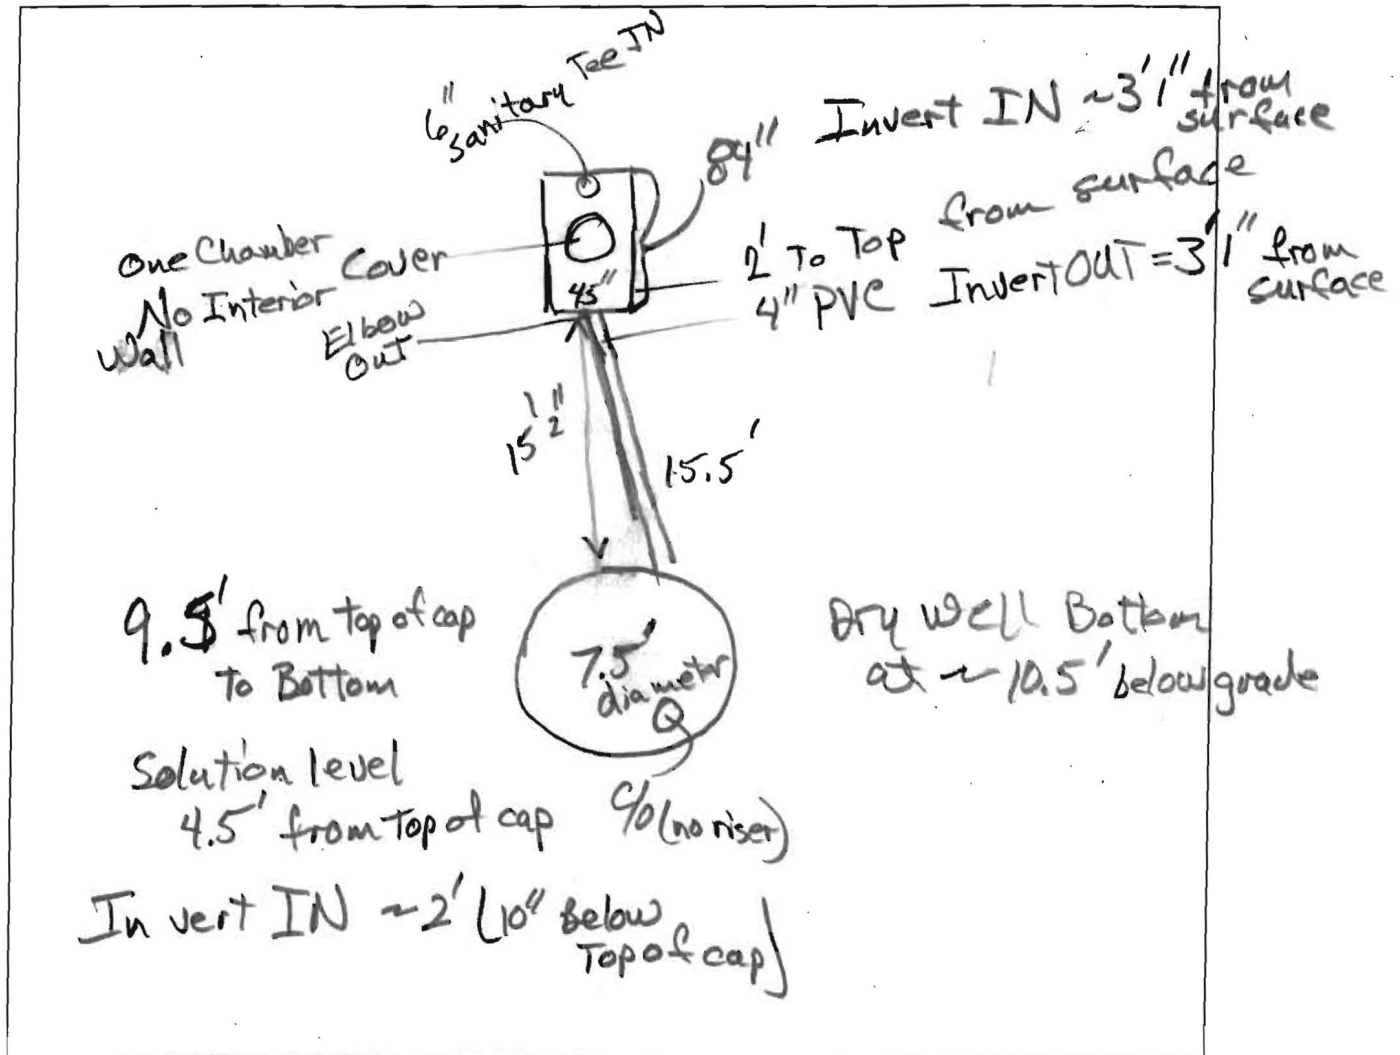 6" sanitary Tee IN
84"
Invert IN ~3'1" from
surface
One Chamber
No Interior
Wall
Cover
45"
2' To Top from surface
4" PVC
Invert OUT = 3'1" from
surface
Elbow
Out
15.5'
9.5' from top of cap
to Bottom
7.5'
diameter
Dry Well Bottom
at ~ 10.5' below grade
Solution level
4.5' from Top of cap
c/o (no riser)
Invert IN ~2' (10" Below
Top of cap)